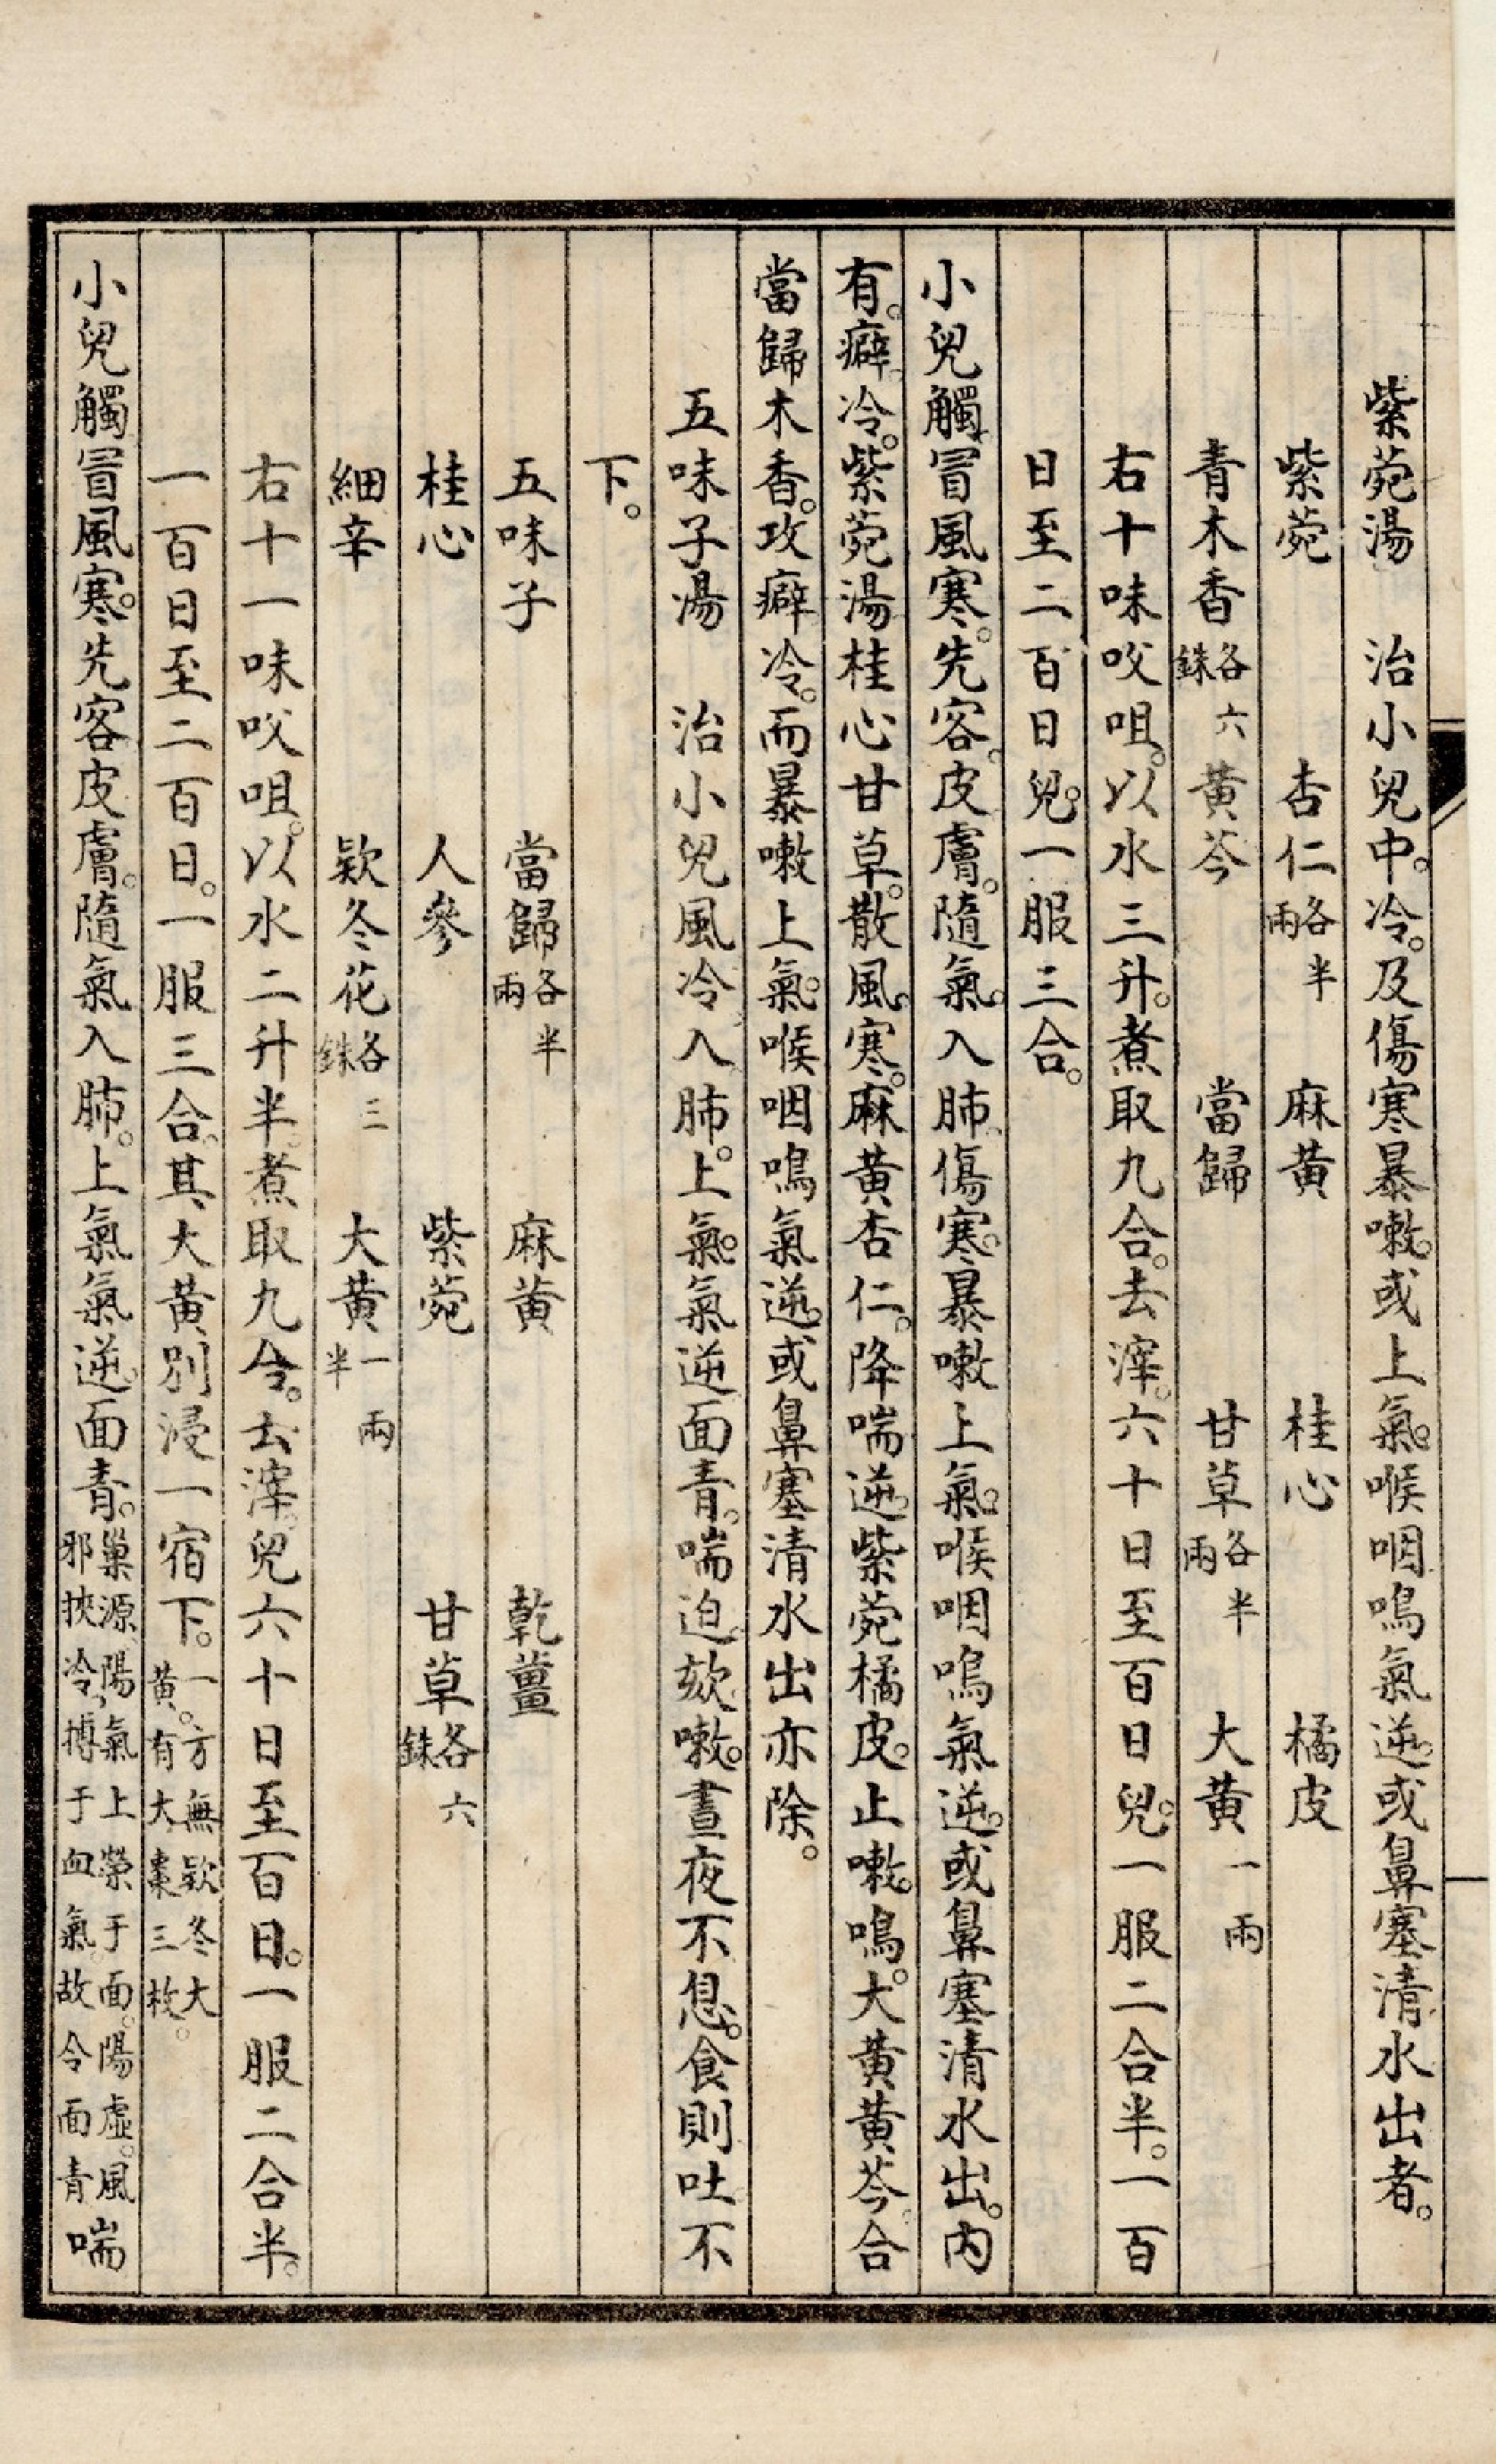 紫菀湯　治小兒中。冷。及傷寒暴嗽。或上氣。喉咽鳴氣逆。或鼻塞清水出者。
紫菀　杏仁各半兩　麻黃　桂心　橘皮
青木香各六銖　黃芩　當歸　甘草各半兩　大黃一兩
右十味㕮咀。以水三升。煮取九合。去滓。六十日至百日兒。一服二合半。一百
日至二百日兒。一服三合。
小兒觸冒風寒。先客。皮膚。隨氣。入肺傷寒。暴嗽上氣。喉咽鳴氣逆。或鼻塞清水出。內
有。癖冷。紫菀湯桂心甘草。散風。寒。麻黃杏仁。降喘逆。紫菀橘皮。止嗽。鳴。大黃黃芩。合
當歸木香。攻癖冷。而暴嗽上氣。喉咽鳴氣逆。或鼻塞清水出亦除。
五味子湯　治小兒風冷入肺。上氣。氣逆面青。喘迫。欬嗽。晝夜不息。食則吐不
下。
五味子　當歸各半兩　麻黃　乾薑
桂心　人參　紫菀　甘草各六銖
細辛　欵冬花各三銖　大黃一兩半
右十一味㕮咀。以水二升半。煮取九合。去滓。兒六十日至百日。一服二合半。
一百日至二百日。一服三合。其大黃別浸一宿下。一方無欵冬大黃。有大棗三枚。
小兒觸冒風寒。先客皮膚。隨氣入肺。上氣氣逆。面青。巢源陽氣上榮于面。陽虛。風邪挾冷。搏于血氣。故令面青喘